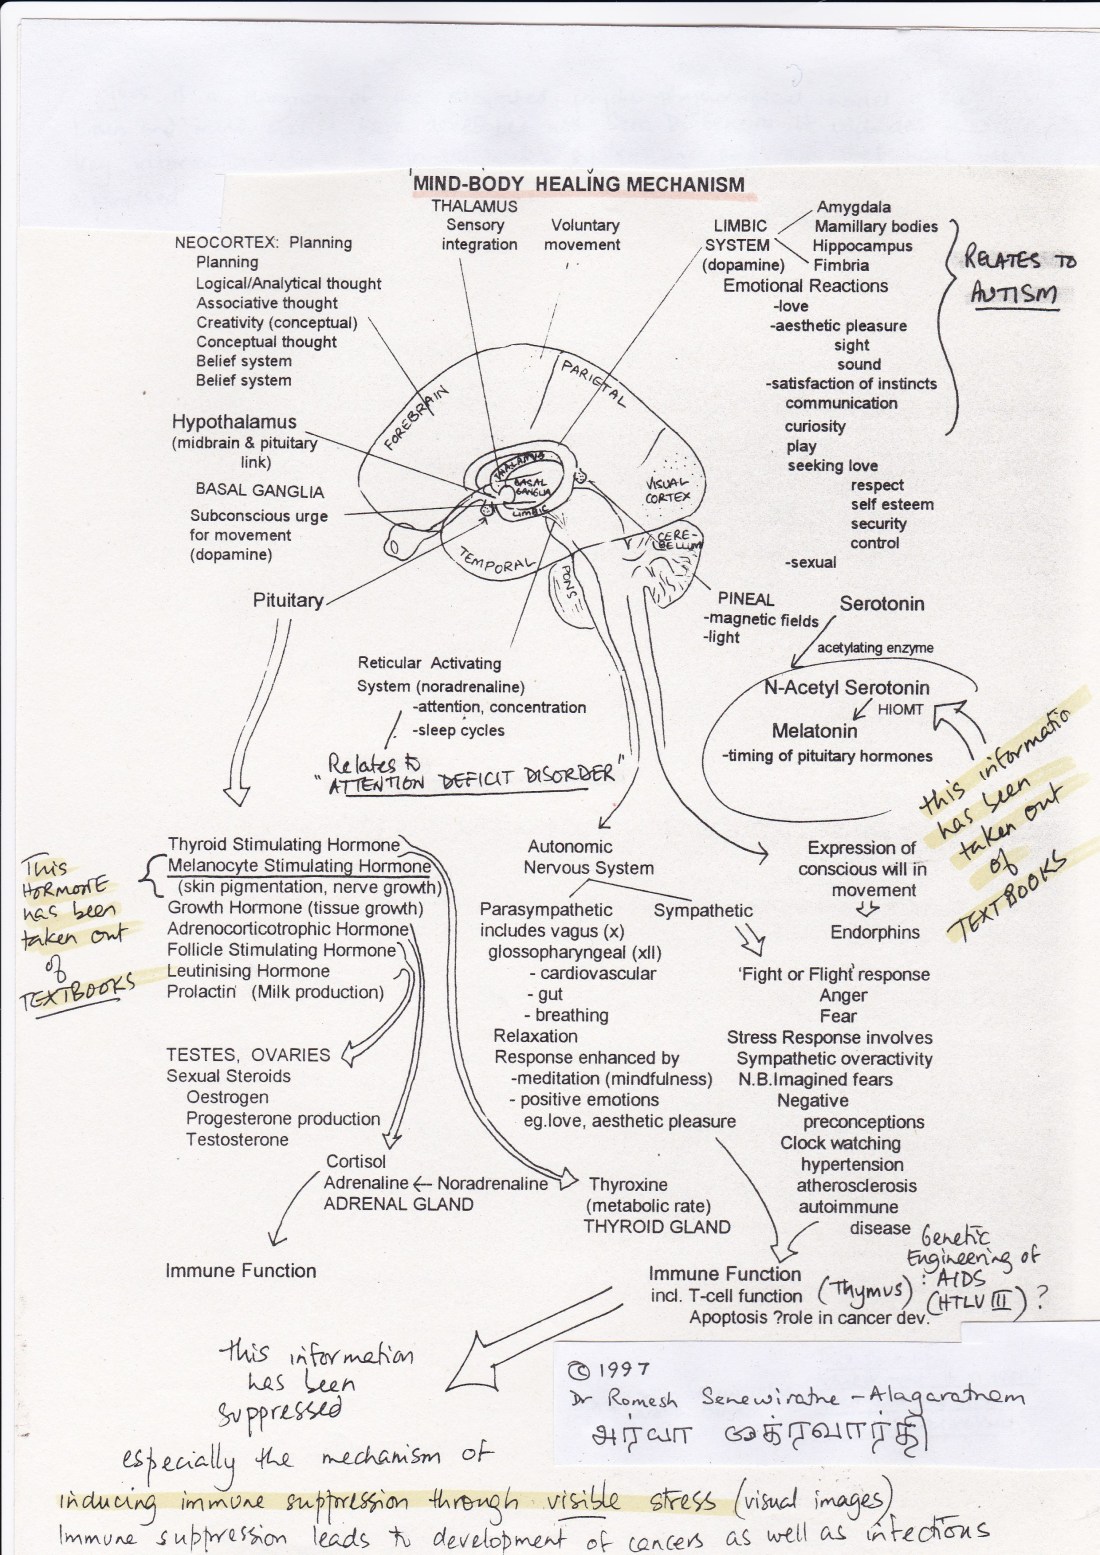 MIND-BODY HEALING MECHANISM
THALAMUS
Sensory
integration
Voluntary
movement
NEOCORTEX: Planning
Planning
Logical/Analytical thought
Associative thought
Creativity (conceptual)
Conceptual thought
Belief system
Belief system
LIMBIC
SYSTEM
(dopamine)
Amygdala
Mamillary bodies
Hippocampus
Fimbria
Emotional Reactions
-love
-aesthetic pleasure
sight
sound
-satisfaction of instincts
communication
curiosity
play
seeking love
respect
self esteem
security
control
-sexual
RELATES TO
AUTISM
Hypothalamus
(midbrain & pituitary
link)
BASAL GANGLIA
Subconscious urge
for movement
(dopamine)
Pituitary
FOREBRAIN
PARIETAL
THALAMUS
BASAL
GANGLIA
LIMBIC
VISUAL
CORTEX
CERE-
BELLUM
TEMPORAL
PONS
PINEAL
-magnetic fields
-light
Serotonin
acetylating enzyme
N-Acetyl Serotonin
HIOMT
Melatonin
-timing of pituitary hormones
this informatio
has been
taken out
of
TEXTBOOKS
Reticular Activating
System (noradrenaline)
-attention, concentration
-sleep cycles
Relates to
"ATTENTION DEFICIT DISORDER"
Thyroid Stimulating Hormone
Melanocyte Stimulating Hormone
(skin pigmentation, nerve growth)
Growth Hormone (tissue growth)
Adrenocorticotrophic Hormone
Follicle Stimulating Hormone
Leutinising Hormone
Prolactin (Milk production)
This
HORMONE
has been
taken out
of
TEXTBOOKS
TESTES, OVARIES
Sexual Steroids
Oestrogen
Progesterone production
Testosterone
Cortisol
Adrenaline ← Noradrenaline
ADRENAL GLAND
Immune Function
Thyroxine
(metabolic rate)
THYROID GLAND
Autonomic
Nervous System
Parasympathetic
includes vagus (x)
glossopharyngeal (xII)
- cardiovascular
- gut
- breathing
Relaxation
Response enhanced by
-meditation (mindfulness)
- positive emotions
eg.love, aesthetic pleasure
Sympathetic
Expression of
conscious will in
movement
Endorphins
'Fight or Flight' response
Anger
Fear
Stress Response involves
Sympathetic overactivity
N.B.Imagined fears
Negative
preconceptions
Clock watching
hypertension
atherosclerosis
autoimmune
disease
Immune Function
incl. T-cell function
Apoptosis ?role in cancer dev.
(Thymus)
Genetic
Engineering of
: AIDS
(HTLV III) ?
this information
has been
suppressed
© 1997
Dr Romesh Senewiratne-Alagaratnam
especially the mechanism of
inducing immune suppression through visible stress (visual images)
Immune suppression leads to development of cancers as well as infections